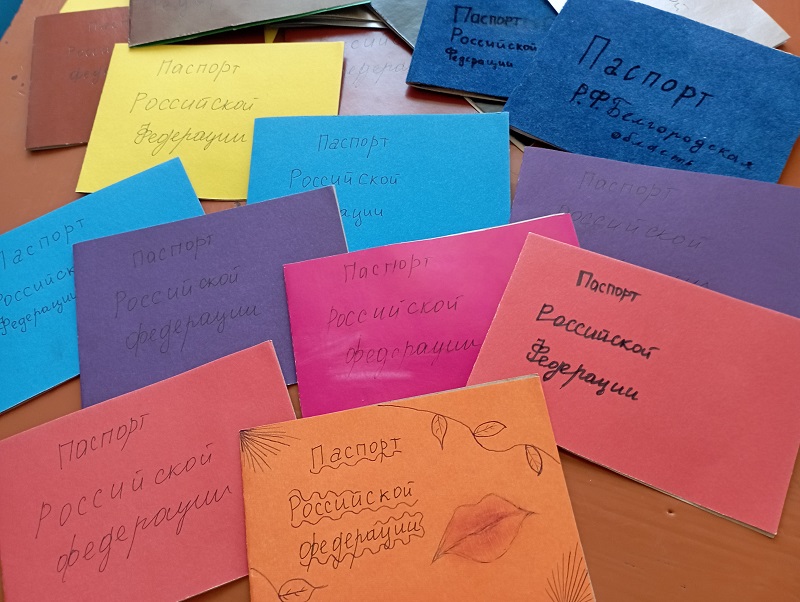 Паспорт
Российской
Федерации
Паспорт
Российской
Федерации
Паспорт
Р.Ф.Белгородская
область
Паспорт
Российской
Паспорт
Российской
Паспорт
Российской
Федерации
Паспорт
Российской
федерации
Паспорт
Российской
федерации
Паспорт
Российской
Федерации
Паспорт
Российской
федерации
Паспорт
Российской
федерации